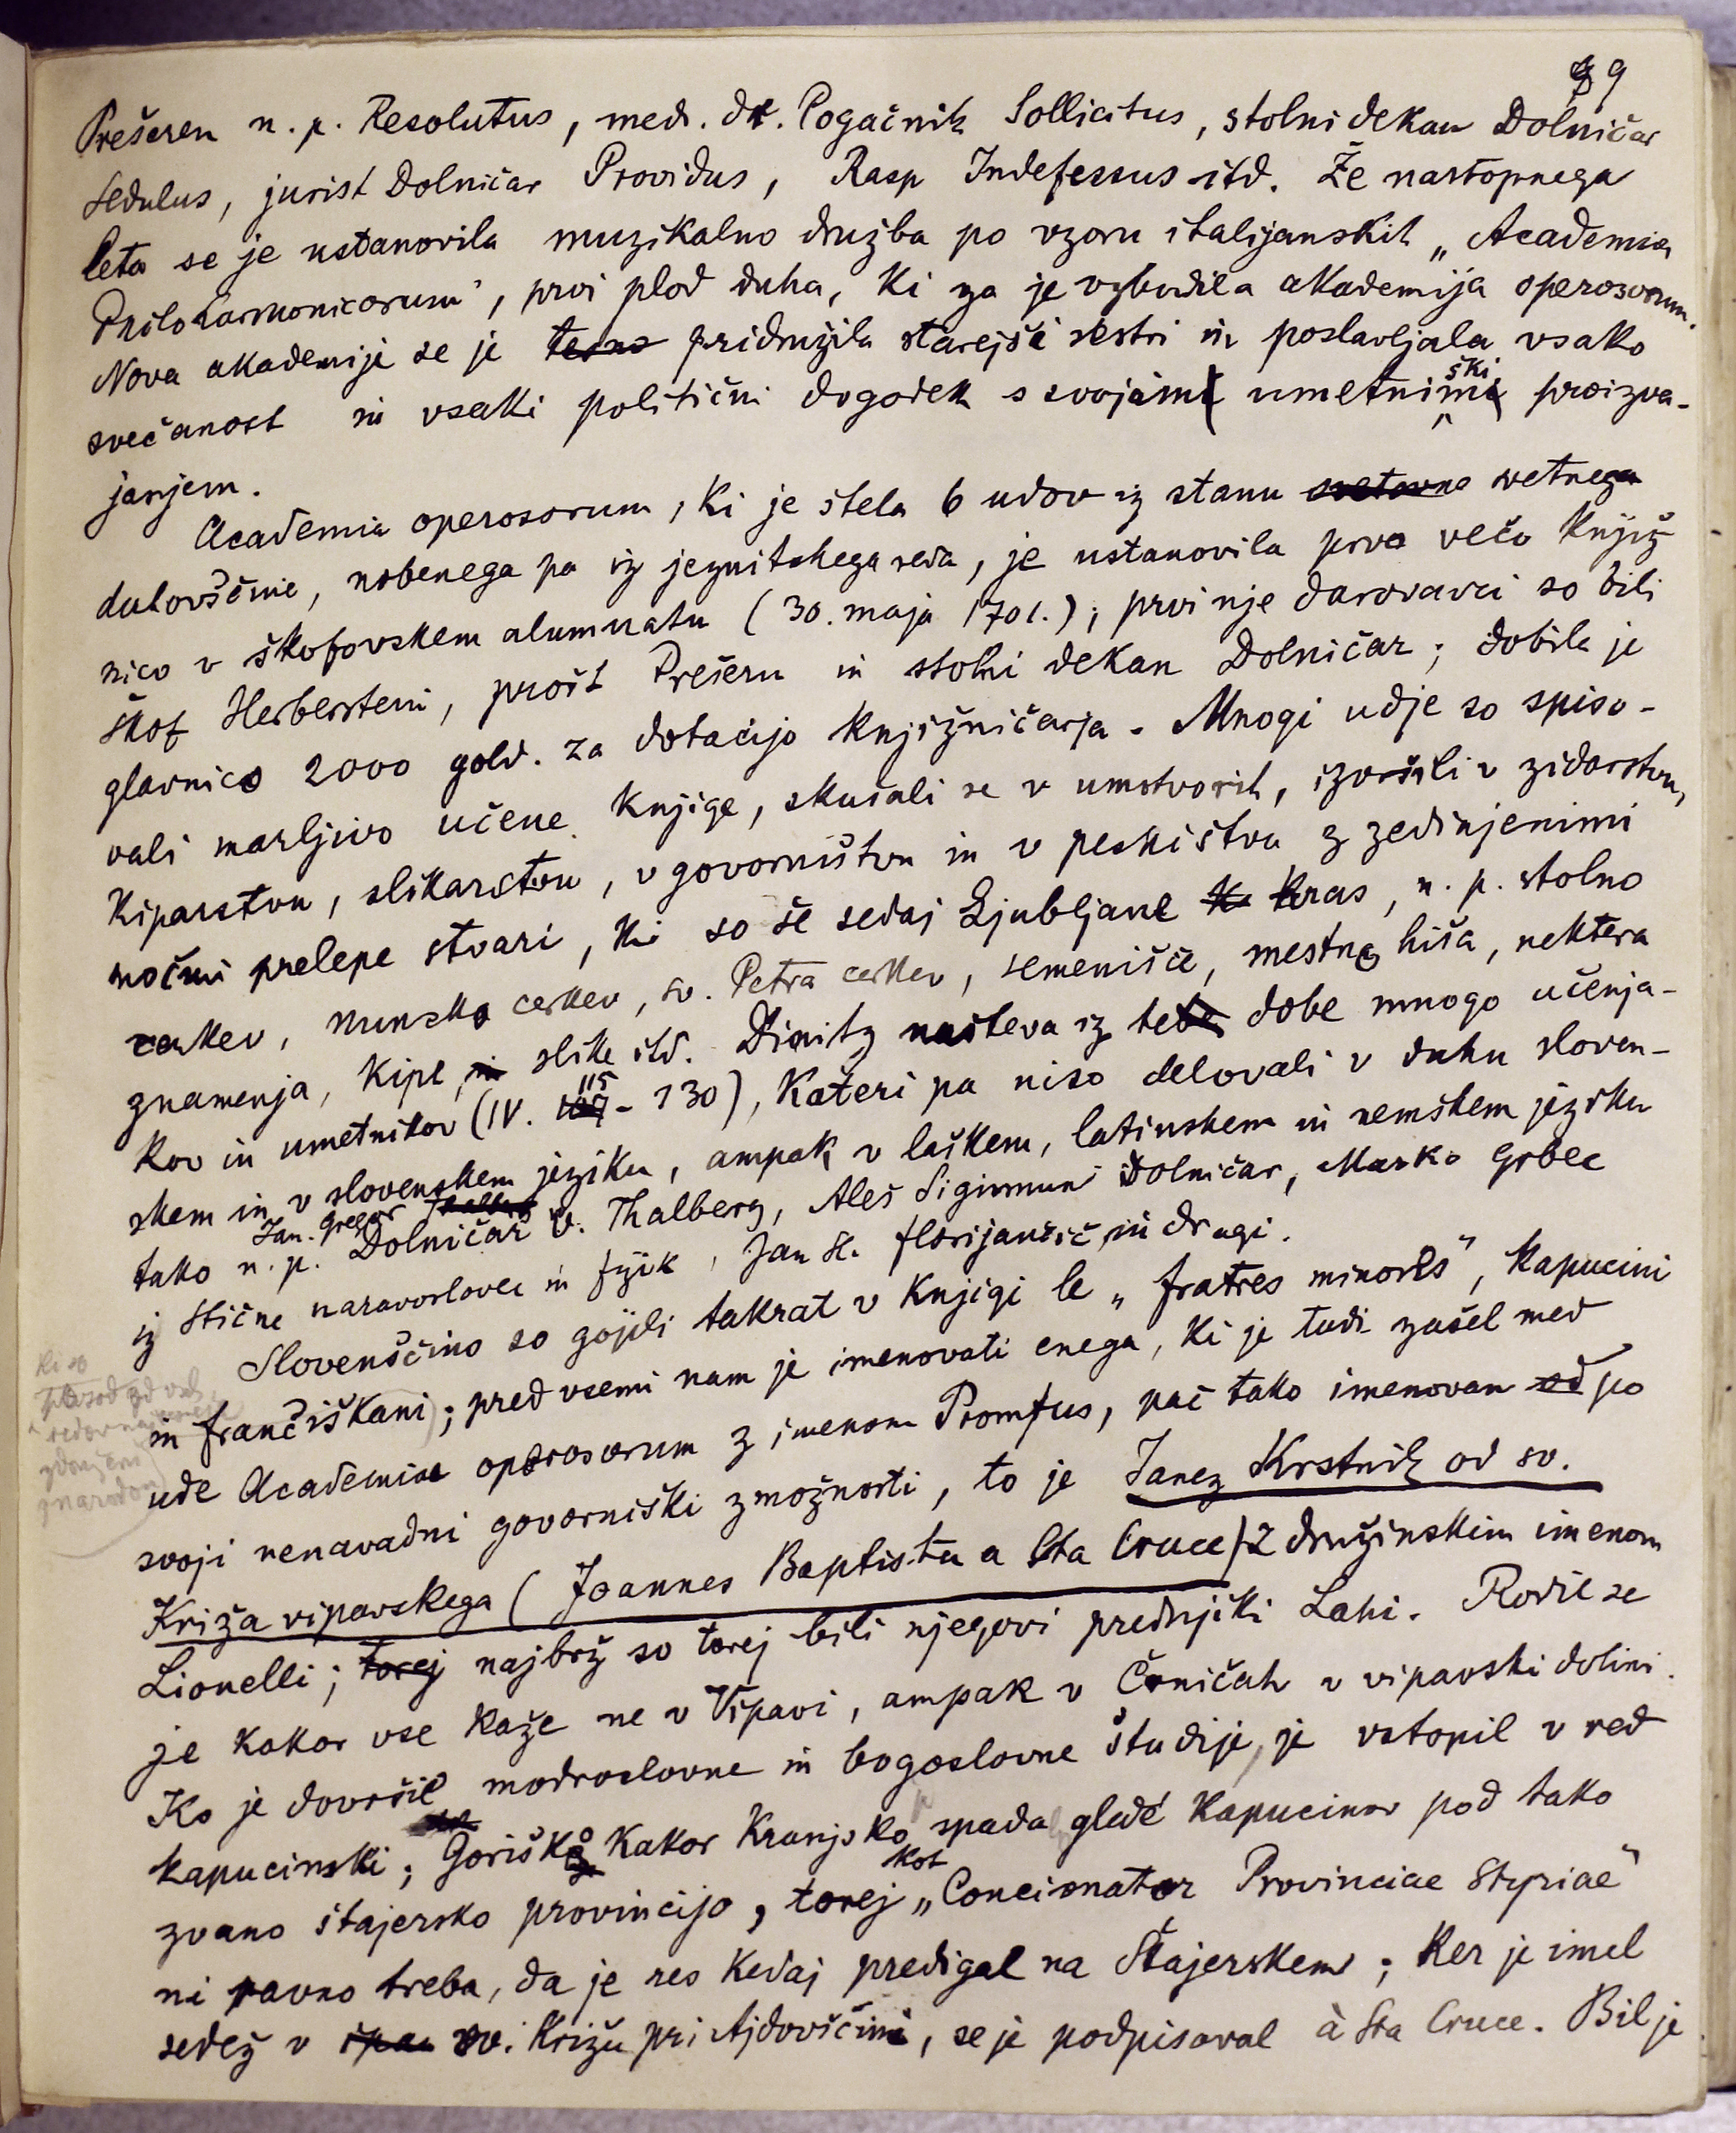 9
Prešeren n. p. Resolutus, med. dr. Pogačnik Sollicitus, stolni dekan Dolničar
Sedulus, jurist Dolničar Providus, Rasp Indefessus itd. Že nastopnega
leta se je ustanovila muzikalno družba po vzoru italijanskih „Academia
Philoharmonicorum", prvi plod duha, ki ga je vzbudila akademija operosorum.
Nova akademije se je tesno pridružila starejši sestri in poslavljala vsako
svečanost in vsaki politični dogodek s svojim umetniškim proizva-
janjem.
Academia operosorum, ki je štela 6 udov iz stanu svetovne svetnega
duhovščine, nobenega pa iz jezuitskega reda, je ustanovila prvo večo knjiž
nico v škofovskem alumnatu (30. maja 1701.); prvi nje darovavci so bili
škof Herberstein, prošt Prešern in stolni dekan Dolničar; dobila je
glavnico 2000 gold. za dotacijo knjižničarja. Mnogi udje so spiso-
vali marljivo učene knjige, skušali se v umotvorih, izvršili v zidarstvu,
kiparstvu, slikarstvu, v govorništvu in v pesništvu z zedinjenimi
močmi prelepe stvari, ki so še sedaj Ljubljane kras, n. p. stolno
cerkev, nunsko cerkev, sv. Petra cerkev, semenišče, mestna hiša, nektera
znamenja, kipe, in slike itd. Dimitz našteva iz te dobe mnogo učenja-
kov in umetnikov (IV. 115 - 130), kateri pa niso delovali v duhu sloven-
skem in v slovenskem jeziku, ampak v laškem, latinskem in nemškem jeziku
Jan. Gregor Thalberg
tako n. p. Dolničar v. Thalberg, Aleš Sigismund Dolničar, Marko Grbec
iz Stične naravoslovec in fizik, Jan St. Florijančič in drugi.
Slovenščino so gojili takrat v knjigi le „fratres minores", kapucini
ki so
in frančiškani; pred vsemi nam je imenovati enega, ki je tudi zašel med
ude Academiae operosorum z imenom Promptus, pač tako imenovan od po
svoji nenavadni govorniški zmožnosti, to je Janez Krstnik od sv.
Križa vipavskega (Joannes Baptista a Sta Cruce) z družinskim imenom
Lionelli; torej najbrž so torej bili njegovi predniki Lahi. Rodil se
je kakor vse kaže ne v Vipavi, ampak v Črničah v vipavski dolini.
Ko je dovršil modroslovne in bogoslovne študije, je vstopil v red
kapucinski; Goriško kakor Kranjsko spada glede kapucinov pod tako
zvano štajersko provincijo, torej kot „Concionator Provinciae Styriae"
ni ravno treba, da je res kedaj predigal na Štajerskem; ker je imel
sedež v sv. Križu pri Ajdovščini, se je podpisaval à Sta Cruce. Bil je